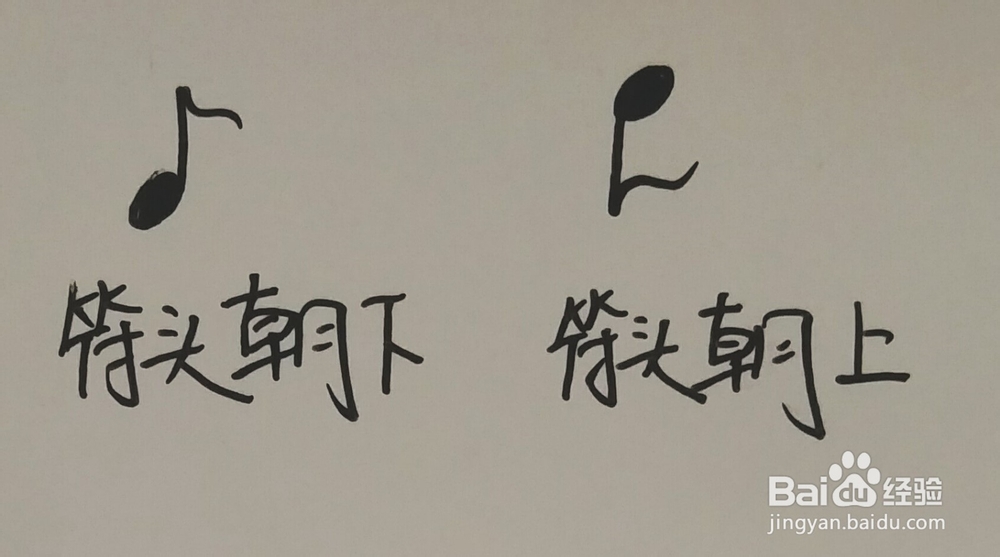 符头朝下 符头朝上
Baidu经验
jingyan.baidu.com